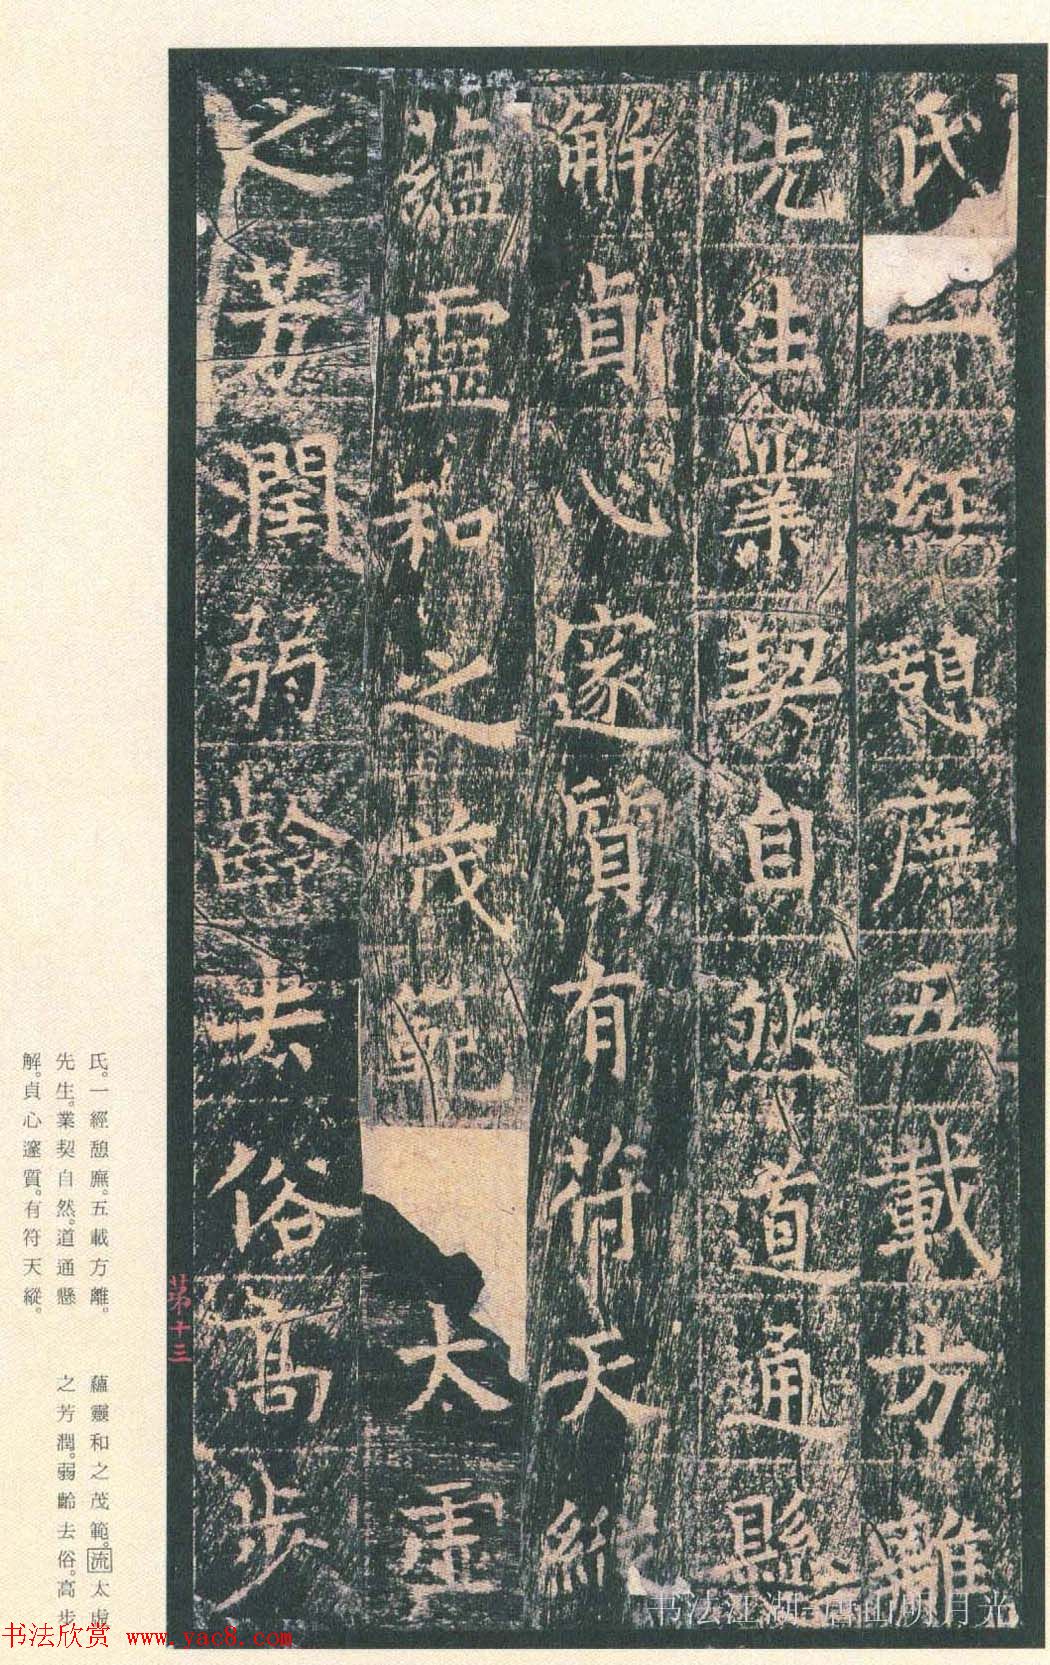 氏一經憩廡五載方離
先生業契自然道通縣
解貞心邃質有符天縱
蘊靈和之茂範太虛
之芳潤弱齡去俗高步
第十三
氏。一經憩廡。五載方離。
先生。業契自然。道通懸
解。貞心邃質。有符天縱。
蘊靈和之茂範。流太虛
之芳潤。弱齡去俗。高步
书法欣赏 www.yac8.com
书法江湖-唐山明月光